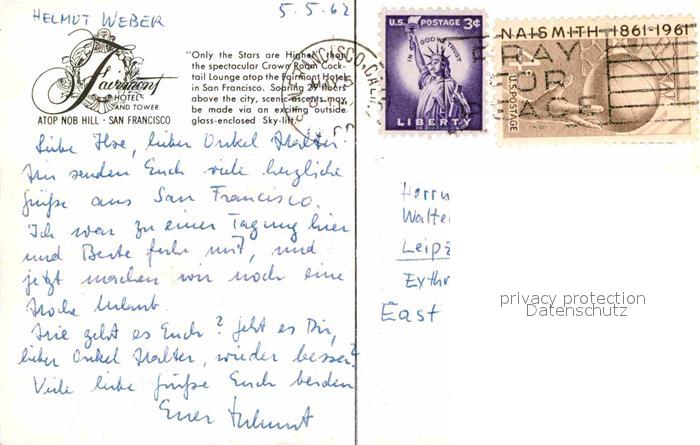 HELMUT WEBER
5.5.62
Fairmont
HOTEL
AND TOWER
ATOP NOB HILL · SAN FRANCISCO
"Only the Stars are Higher" that
the spectacular Crown Room Cock-
tail Lounge atop the Fairmont Hotel
in San Francisco. Soaring 29 floors
above the city, scenic ascents may
be made via an exciting outside
glass-enclosed Sky-lift.
U.S. POSTAGE 3¢
IN GOD WE TRUST
LIBERTY
NAISMITH 1861-1961
4¢
U.S. POSTAGE
PRAY
FOR
PEACE
SAN FRANCISCO, CALIF.
Liebe Ilse, lieber Onkel Walter.
Wir senden Euch viele herzliche
Grüße aus San Francisco.
Ich war zu einer Tagung hier
und Beate fuhr mit, und
jetzt machen wir noch eine
Woche Urlaub.
Wie geht es Euch? Geht es Dir,
lieber Onkel Walter, wieder besser?
Viele liebe Grüße Euch beiden
Euer Helmut
Herrn
Walte
Leipz
Eythr
East
privacy protection
Datenschutz